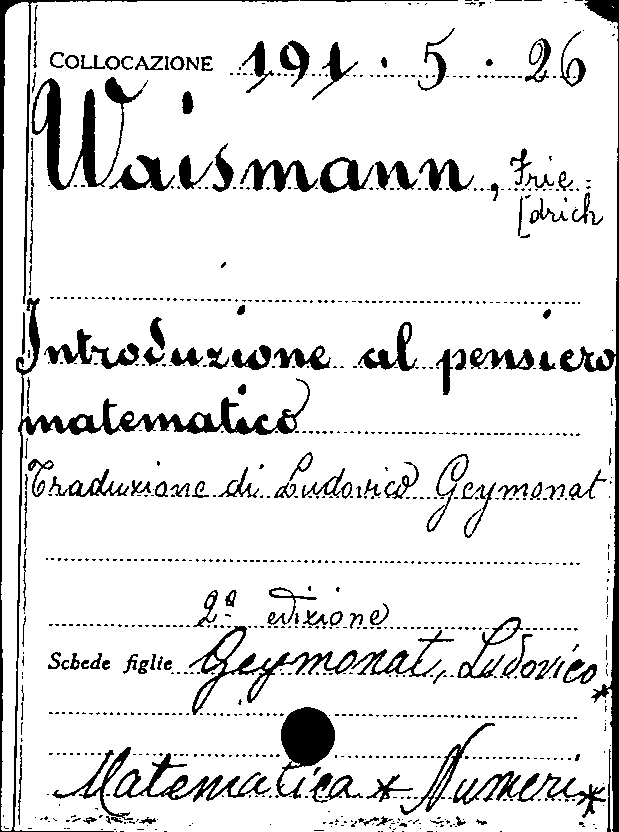 COLLOCAZIONE 191 · 5 · 26
Waismann, Frie=
[drich
Introduzione al pensiero
matematico
Traduzione di Ludovico Geymonat
2ª edizione
Schede figlie Geymonat, Ludovico *
Matematica * Numeri *